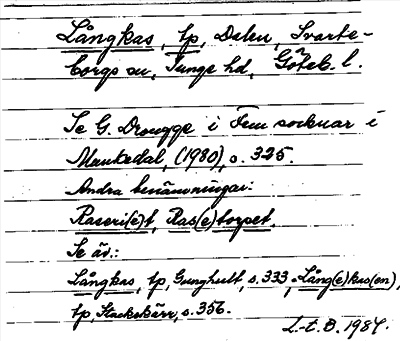 Långkas, tp, Delen, Svarte-
borgs sn, Tunge hd, Göteb. l.
Se G. Drougge i Fem socknar i
Munkedal, (1980), s. 325.
Andra benämningar:
Raseri(e)t, Ras(e)torpet.
Se äv.:
Långkas, tp, Gunghult, s. 333, Lång(e)kas(en),
tp, Stackekärr, s. 356.
L-t. B. 1984.